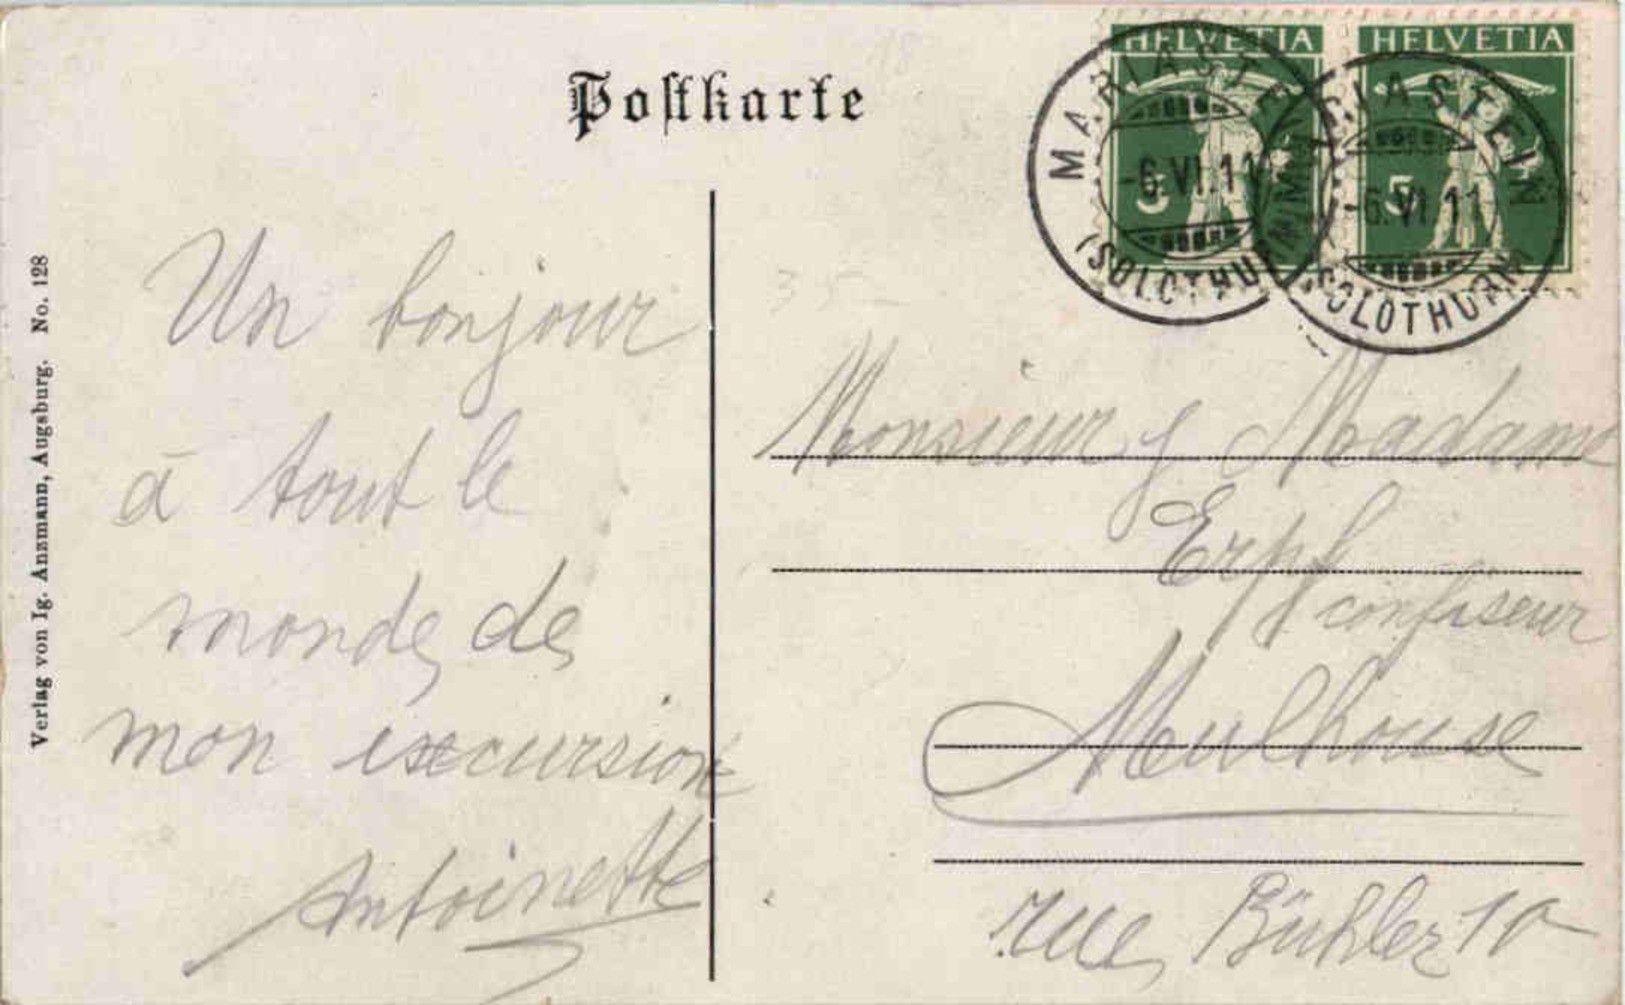 Postkarte
HELVETIA HELVETIA
5 5
MARIASTEIN
-6.VI.11
(SOLOTHURN)
MARIASTEIN
-6.VI.11
(SOLOTHURN)
Verlag von Ig. Anzmann, Augsburg. No. 128
Un bonjour
à tout le
monde de
mon excursion
Antoinette
35
Monsieur & Madame
Erpf
confiseur
Mulhouse
rue Bühler 10